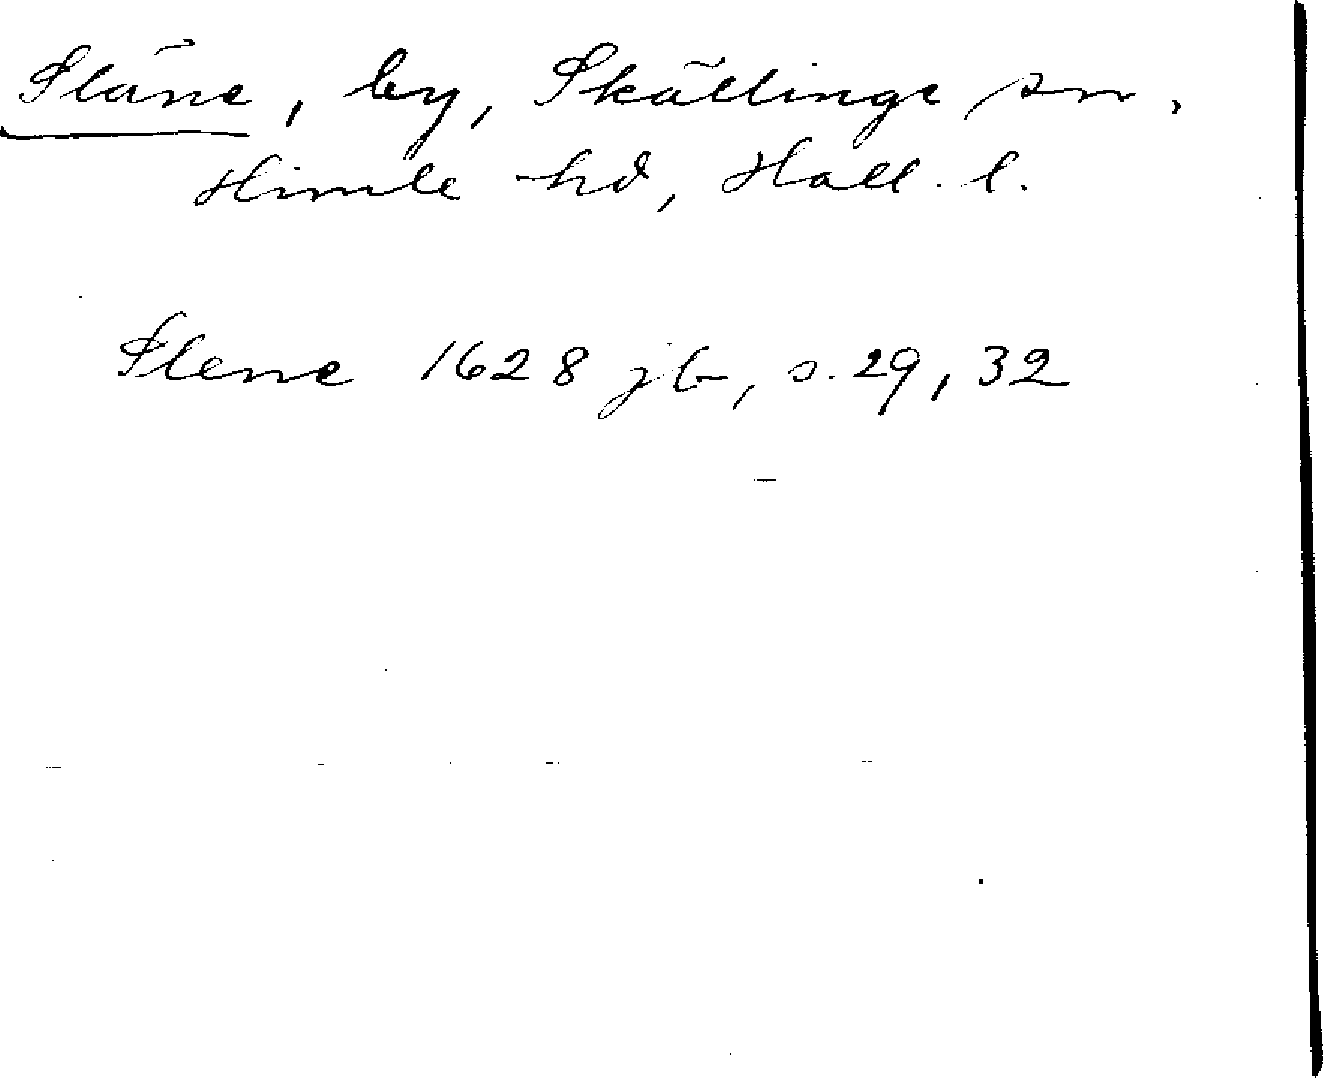 Släne, by, Skällinge sn,
Himle hd, Hall. l.
Slene 1628 jb, s. 29, 32